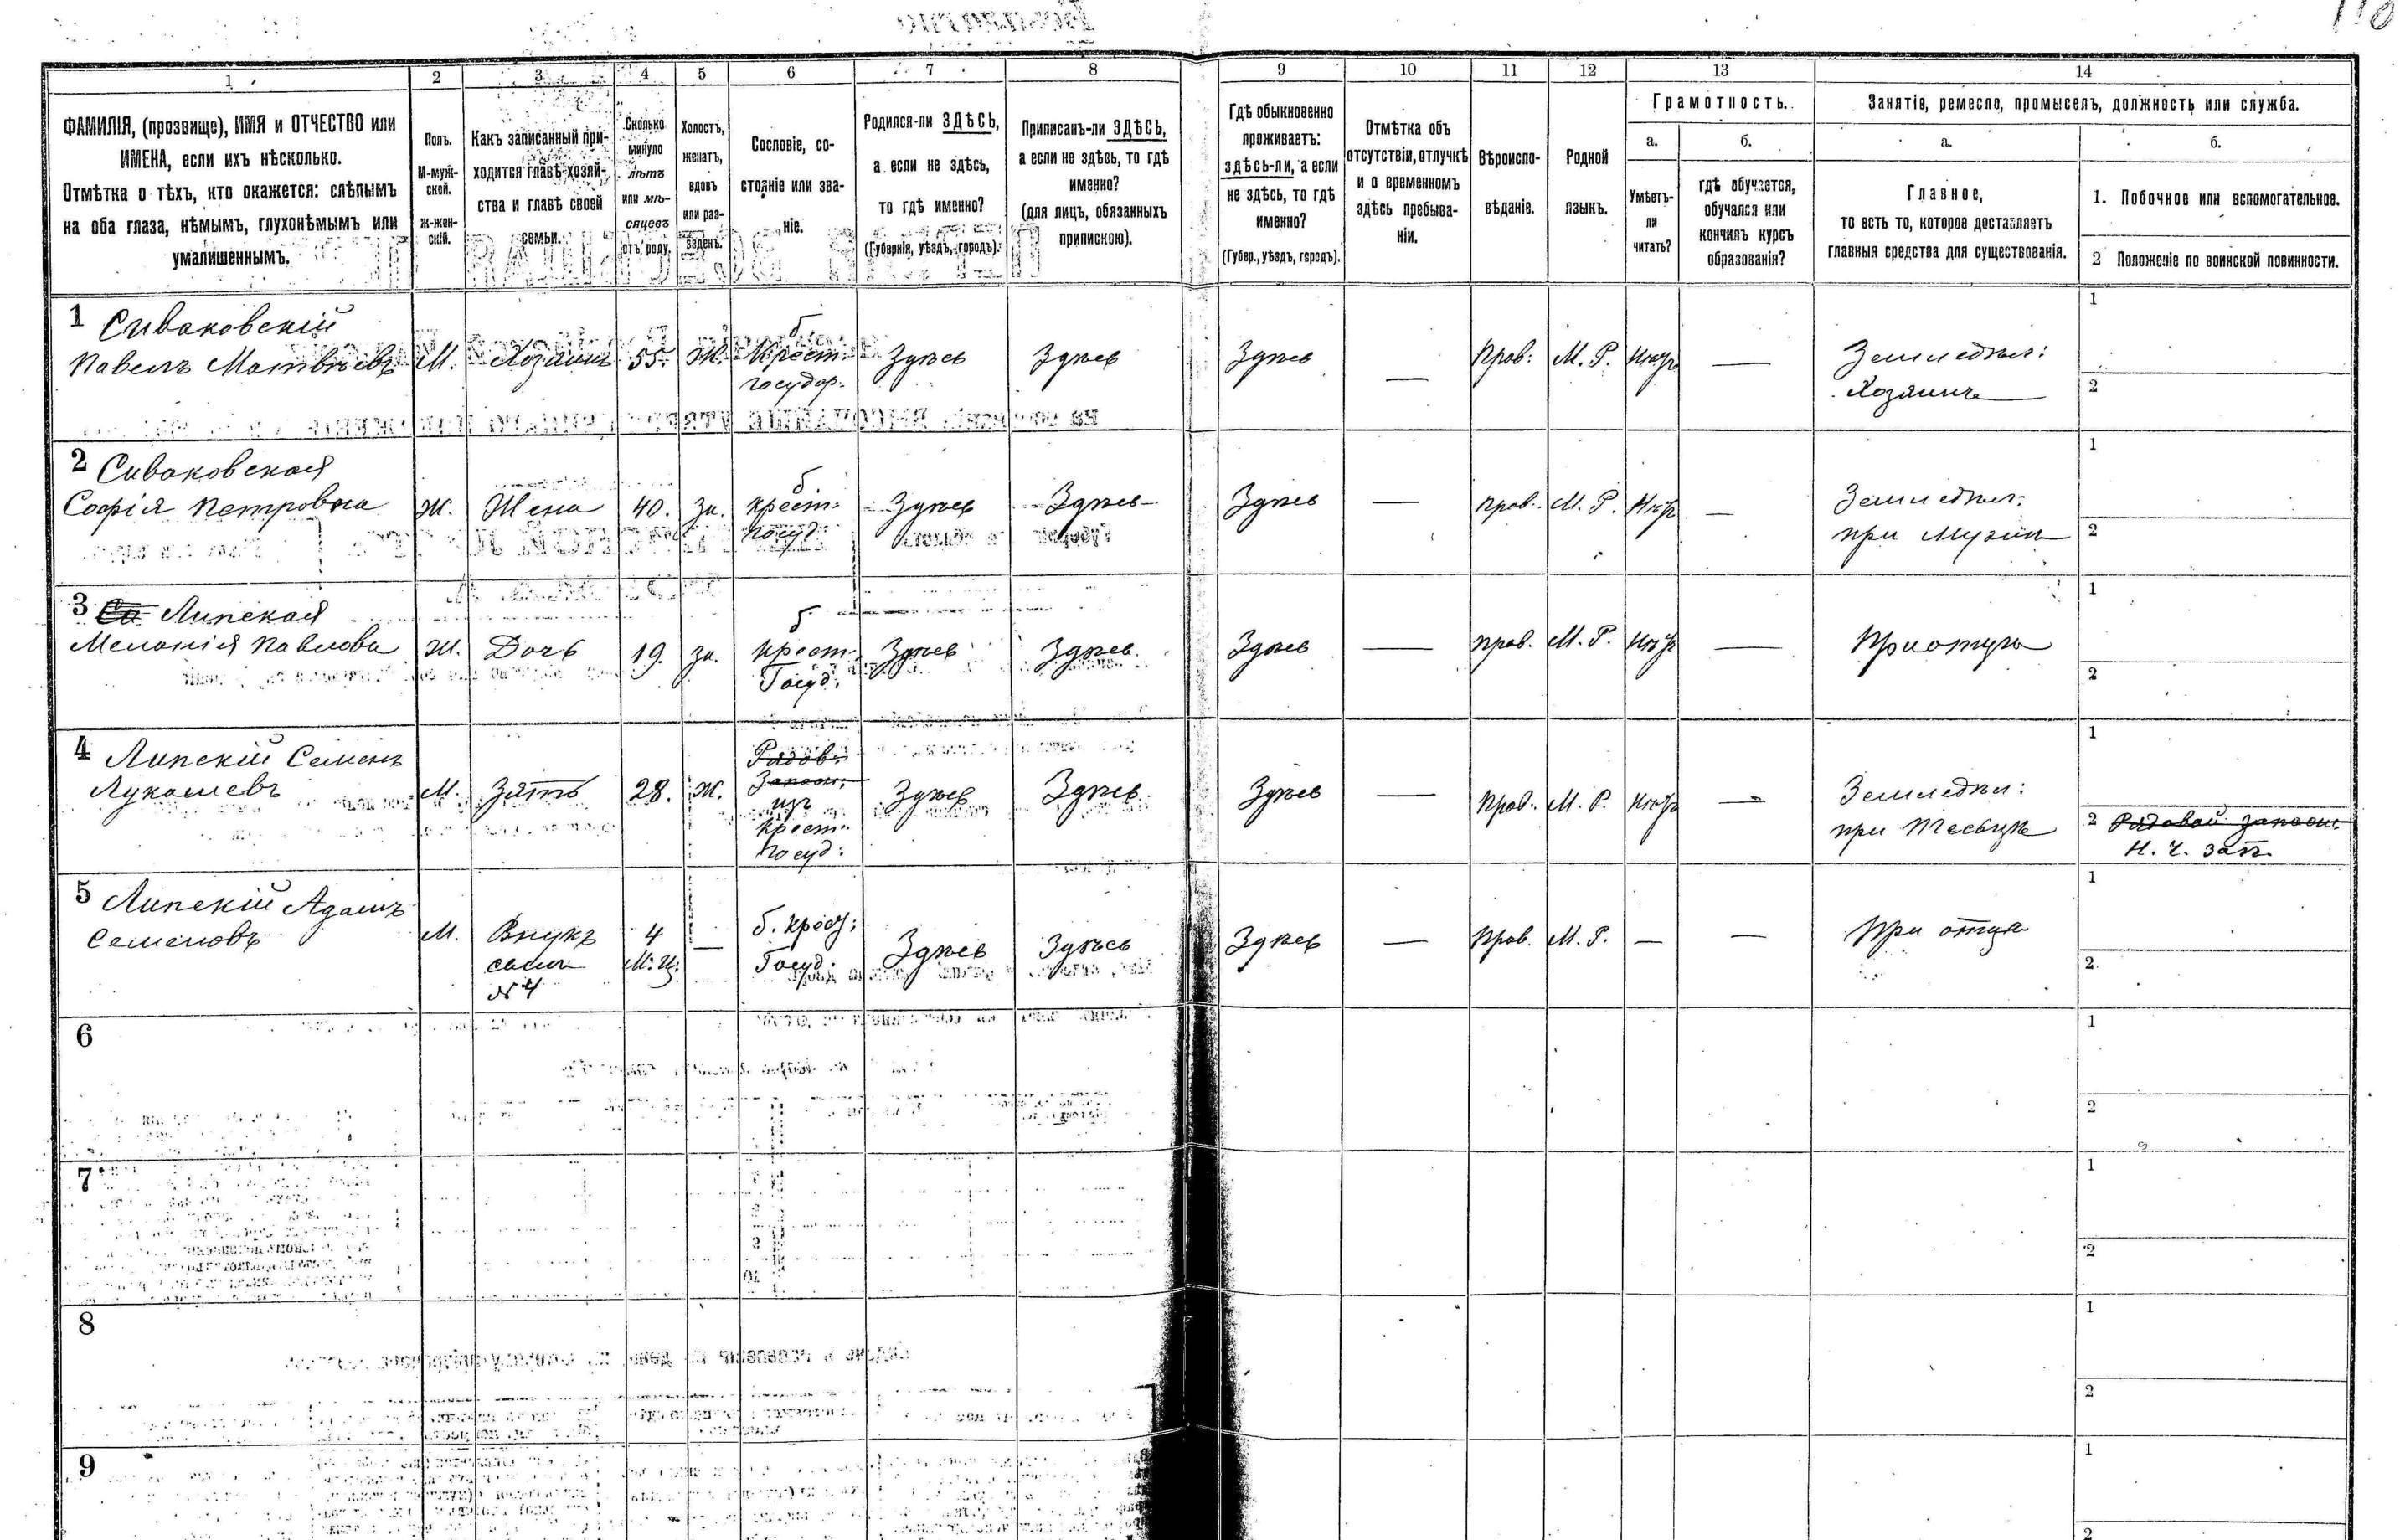 1 2 3 4 5 6 7 8 9 10 11 12 13 14
ФАМИЛІЯ, (прозвище), ИМЯ и ОТЧЕСТВО или
ИМЕНА, если ихъ нѣсколько.
Отмѣтка о тѣхъ, кто окажется: слѣпымъ
на оба глаза, нѣмымъ, глухонѣмымъ или
умалишеннымъ.
Полъ.
М-муж-
ской.
Ж-жен-
скій.
Какъ записанный при-
ходится главѣ хозяй-
ства и главѣ своей
семьи.
Сколько
минуло
лѣтъ
или мѣ-
сяцевъ
отъ роду.
Холостъ,
женатъ,
вдовъ
или раз-
веденъ.
Сословіе, со-
стояніе или зва-
ніе.
Родился-ли ЗДѢСЬ,
а если не здѣсь,
то гдѣ именно?
(Губернія, уѣздъ, городъ).
Приписанъ-ли ЗДѢСЬ,
а если не здѣсь, то гдѣ
именно?
(для лицъ, обязанныхъ
припискою).
Гдѣ обыкновенно
проживаетъ:
здѣсь-ли, а если
не здѣсь, то гдѣ
именно?
(Губер., уѣздъ, городъ).
Отмѣтка объ
отсутствіи, отлучкѣ
и о временномъ
здѣсь пребыва-
ніи.
Вѣроиспо-
вѣданіе.
Родной
языкъ.
Грамотность.
а.
Умѣетъ-
ли
читать?
б.
гдѣ обучается,
обучался или
кончилъ курсъ
образованія?
Занятіе, ремесло, промыселъ, должность или служба.
а.
Главное,
то есть то, которое доставляетъ
главныя средства для существованія.
б.
1. Побочное или вспомогательное.
2 Положеніе по воинской повинности.
1 Сиваковскій
Павелъ Матвѣевъ М. Хозяинъ 55. Ж. б. Крест. государ. Здѣсь Здѣсь Здѣсь — Прав: М. Р. — Земледѣл:
Хозяинъ
1
2
2 Сиваковская
Софія Петровна Ж. Жена 40. За. б. крест. Госуд. Здѣсь Здѣсь Здѣсь — прав. М. Р. — Земледѣл:
при Мужѣ
1
2
3 Липская
Меланія Павлова Ж. Дочь 19. За. б. крест. Госуд. Здѣсь Здѣсь Здѣсь — прав. М. Р. — При отцѣ
1
2
4 Липскій Семенъ
Лукашевъ М. Зять 28. Ж. Рядов. Запасн. изъ крест. Госуд: Здѣсь Здѣсь Здѣсь — Прав. М. Р. — Земледѣл:
при Тестѣ
1
2 Рядовой запасн
Н. Ч. зап.
5 Липскій Адамъ
Семеновъ М. Внукъ сынъ № 4 4 М-ц. — б. крест: Госуд. Здѣсь Здѣсь Здѣсь — Прав. М. Р. — — При отцѣ
1
2
6
1
2
7
1
2
8
1
2
9
1
2